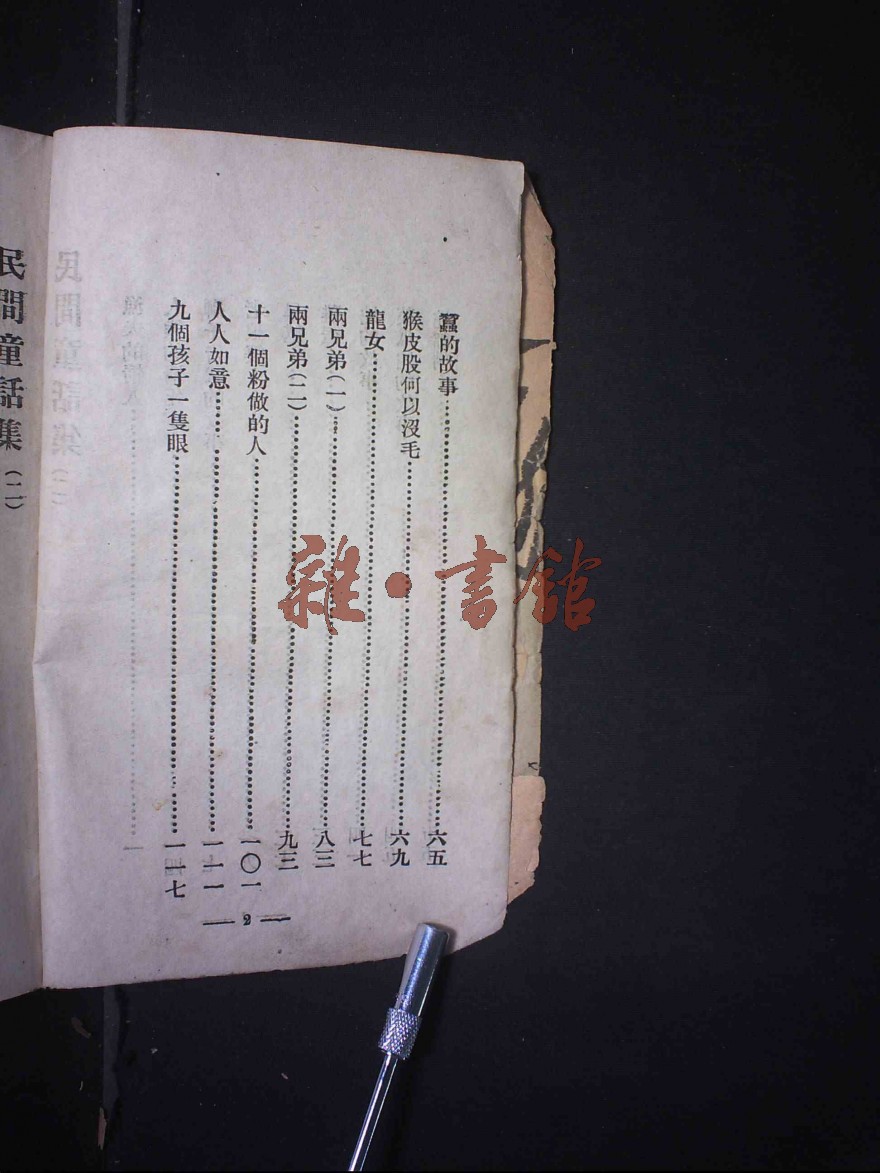 蠶的故事……六五
猴皮股何以沒毛……六九
龍女……七七
兩兄弟(一)……八三
兩兄弟(二)……九三
十一個粉做的人……一〇一
人人如意……一一一
九個孩子一隻眼……一一七
— 2 —
民間童話集(二)
雜·書館